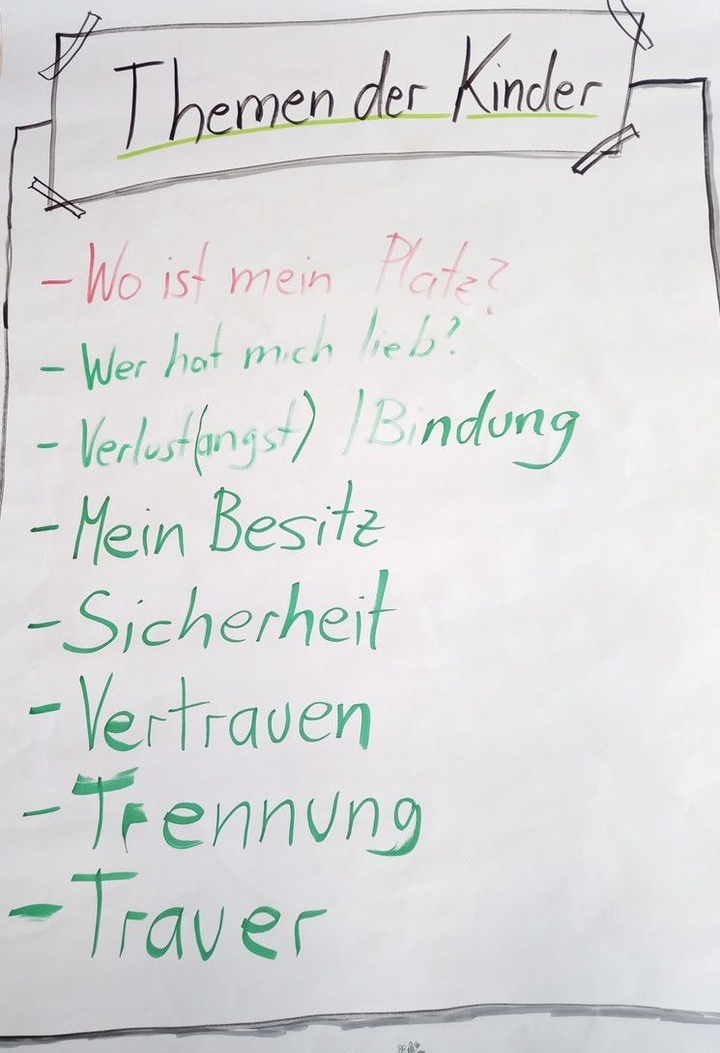 Themen der Kinder
- Wo ist mein Platz?
- Wer hat mich lieb?
- Verlust(angst) / Bindung
- Mein Besitz
- Sicherheit
- Vertrauen
- Trennung
- Trauer